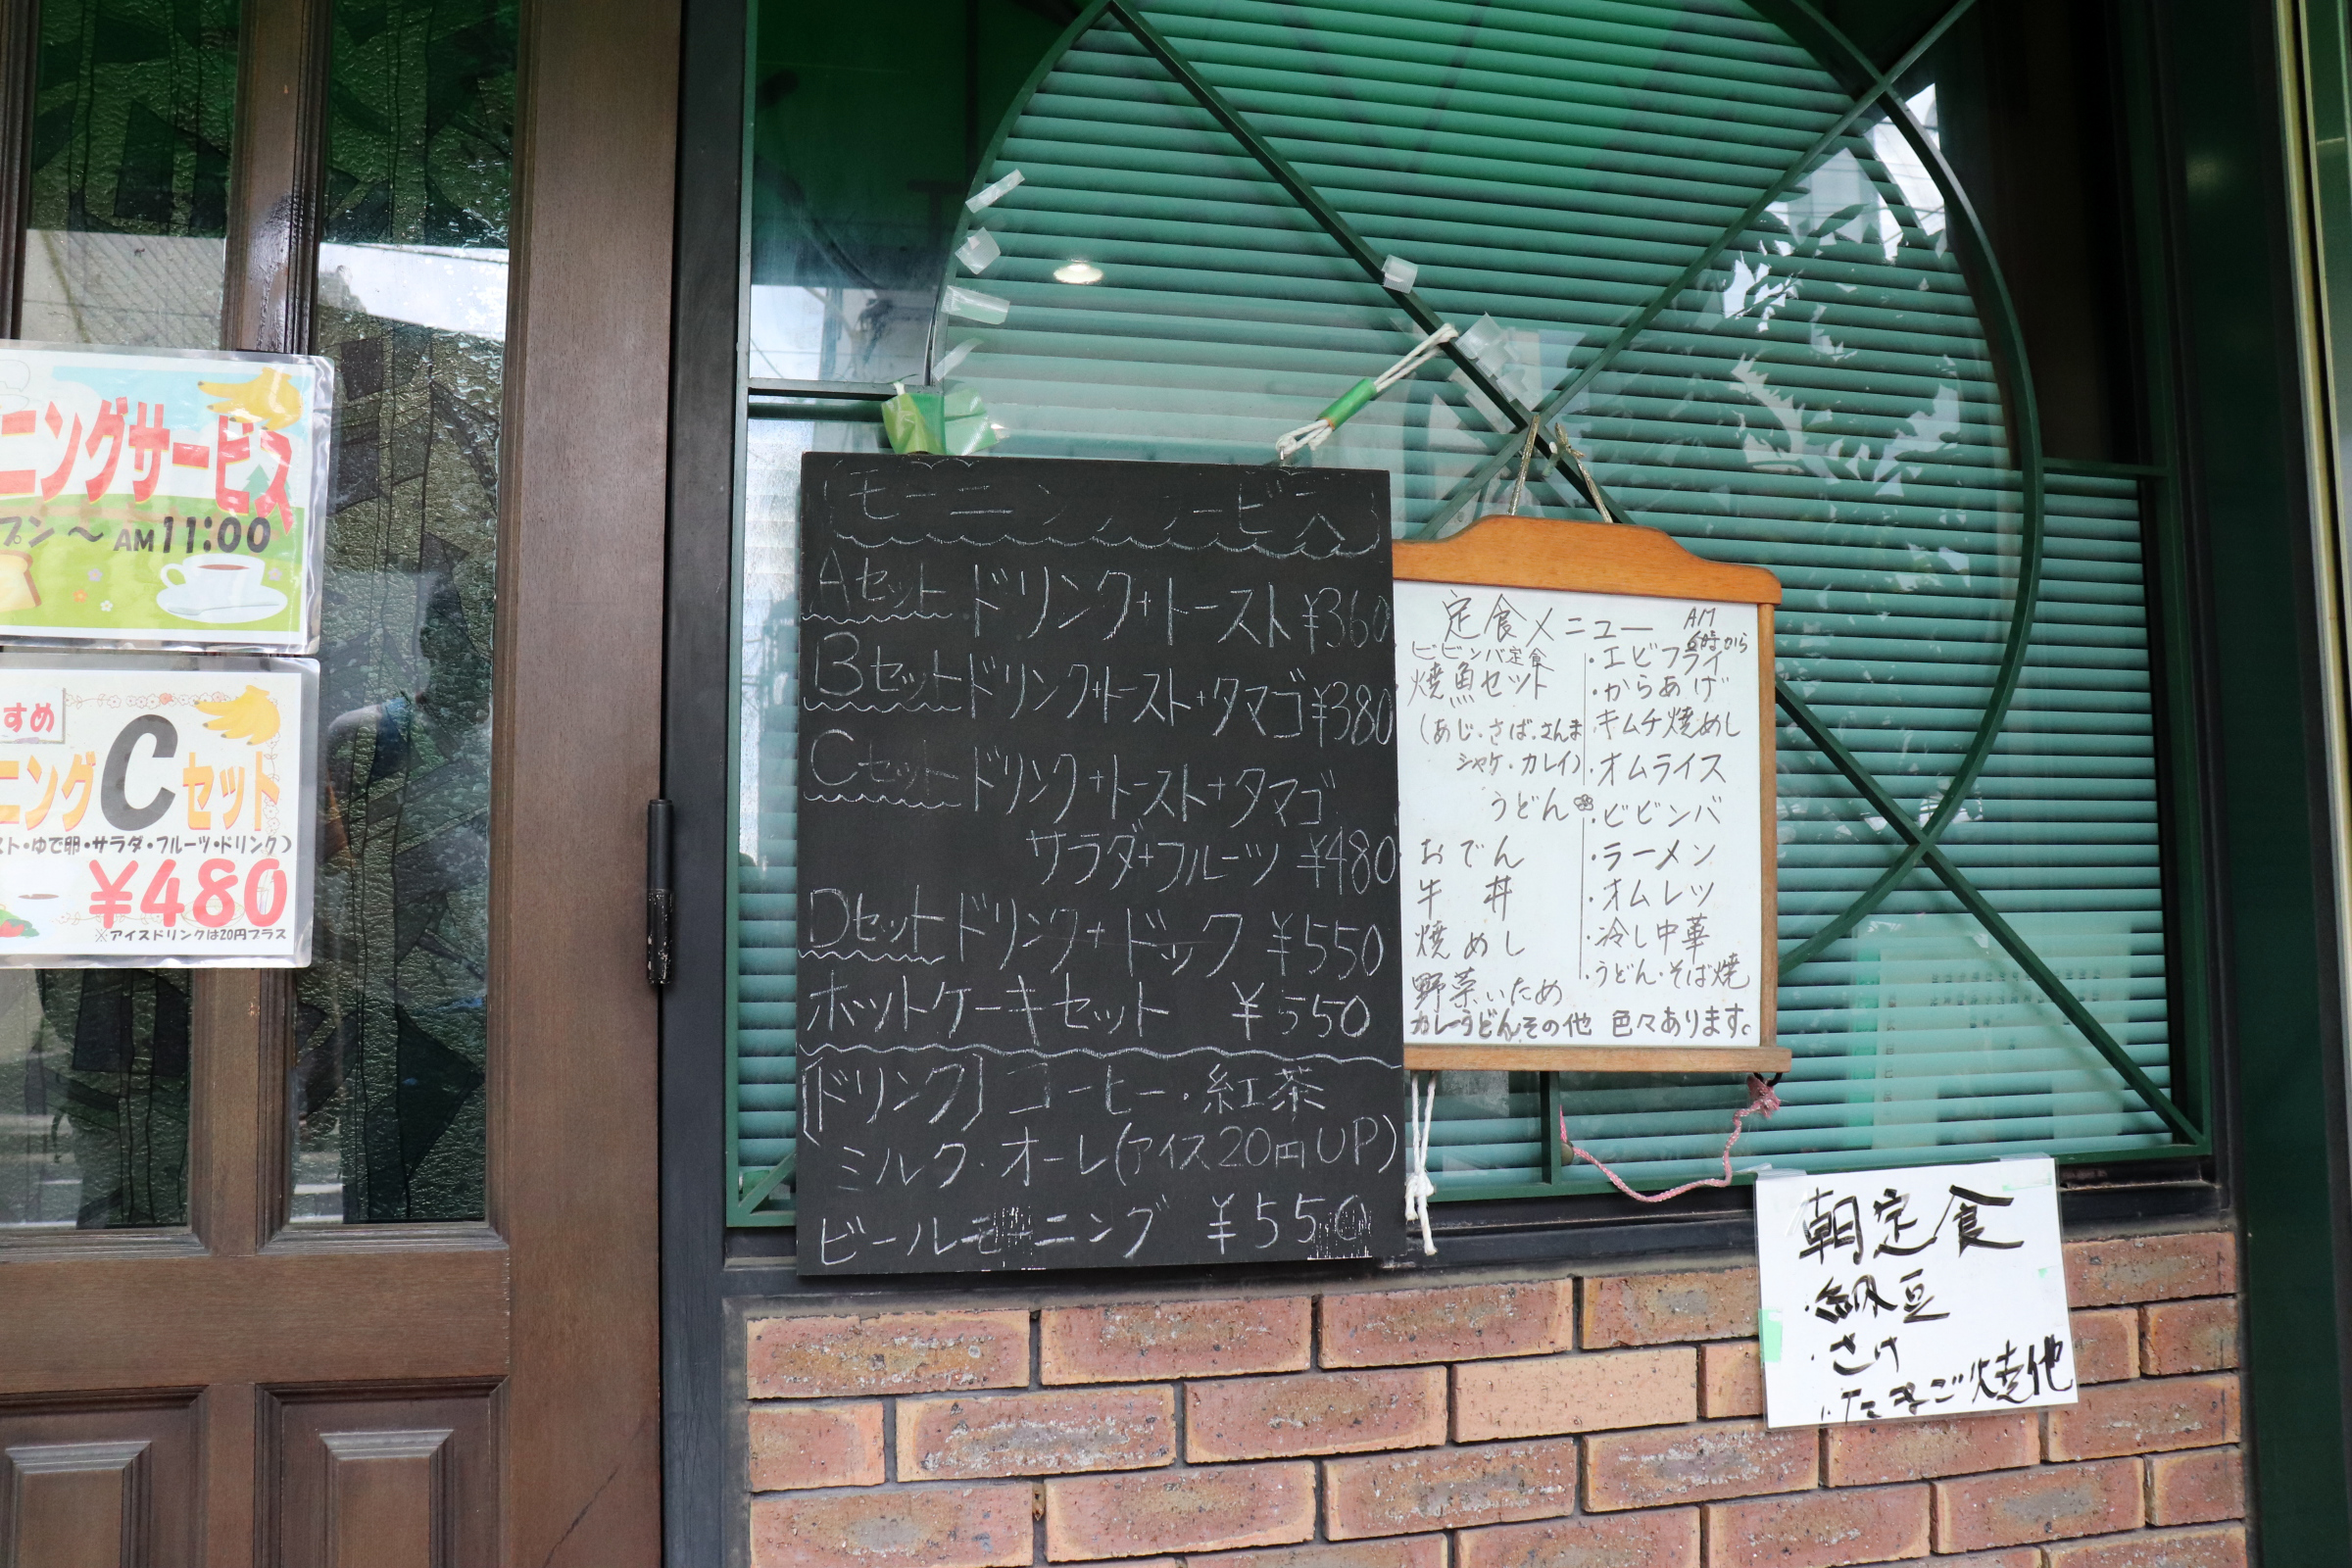 ニングサービス
プン～AM11:00
すめ
ニングCセット
スト・ゆで卵・サラダ・フルーツ・ドリンク）
¥480
※アイスドリンクは20円プラス
Aセット ドリンク+トースト ¥360
Bセット ドリンク+トースト+タマゴ ¥380
Cセット ドリンク+トースト+タマゴ
サラダ+フルーツ ¥480
Dセット ドリンク+ドック ¥550
ホットケーキセット ¥550
[ドリンク] コーヒー・紅茶
ミルク・オーレ(アイス20円UP)
ビールモーニング ¥550
定食メニュー AM
6時から
ビビンバ定食
焼魚セット
(あじ・さば・さんま
シャケ・カレイ)
うどん
おでん
牛丼
焼めし
野菜いため
カレーうどんその他 色々あります。
・エビフライ
・からあげ
キムチ焼めし
・オムライス
・ビビンバ
・ラーメン
・オムレツ
・冷し中華
・うどん・そば焼
朝定食
・納豆
・さけ
・たまご焼他